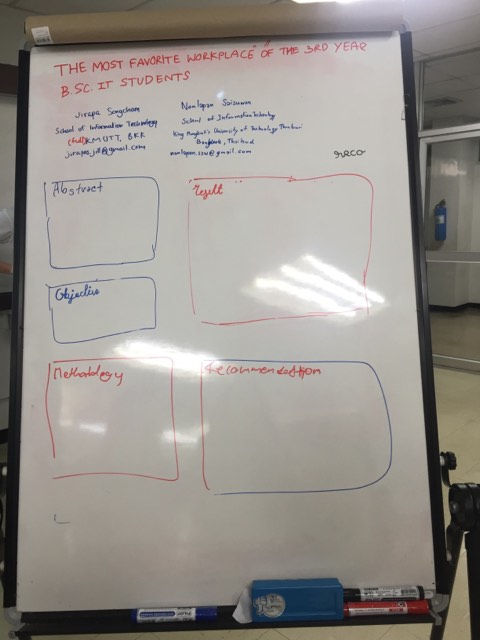 THE MOST FAVORITE WORKPLACE OF THE 3RD YEAR
B.SC. IT STUDENTS
Jirapa Songchom
School of Information Technology
(full) KMUTT, BKK
jirapas.jill@gmail.com
Namlapan Srisuwan
School of Information Technology
King Mongkut's University of Technology Thonburi
Bangkok, Thailand
reco
Abstract
Result
Objective
Methodology
Recommendation